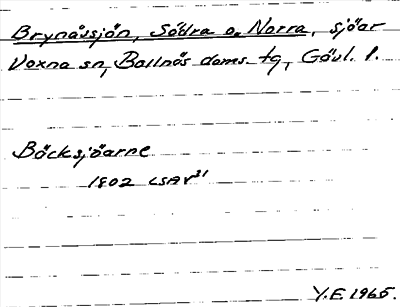 Brynåssjön, Södra o. Norra, sjöar
Voxna sn, Bollnäs doms. tg, Gävl. l.
Bäcksjöarne
1802 LSAV31
Y.E. 1965.